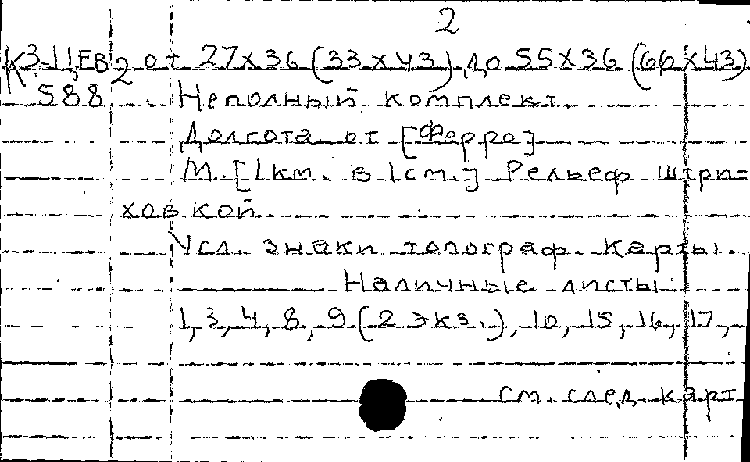 2
К 3-ЦЕВ 2 от 27х36 (33х43) до 55х36 (66х43)
588 Неполный комплект.
Долгота от [Ферро]
М. [1км. в 1см.] Рельеф штри-
ховкой.
Усл. знаки топограф. карты.
Наличные листы:
1, 3, 4, 8, 9 (2 экз.), 10, 15, 16, 17,
см. след. карт